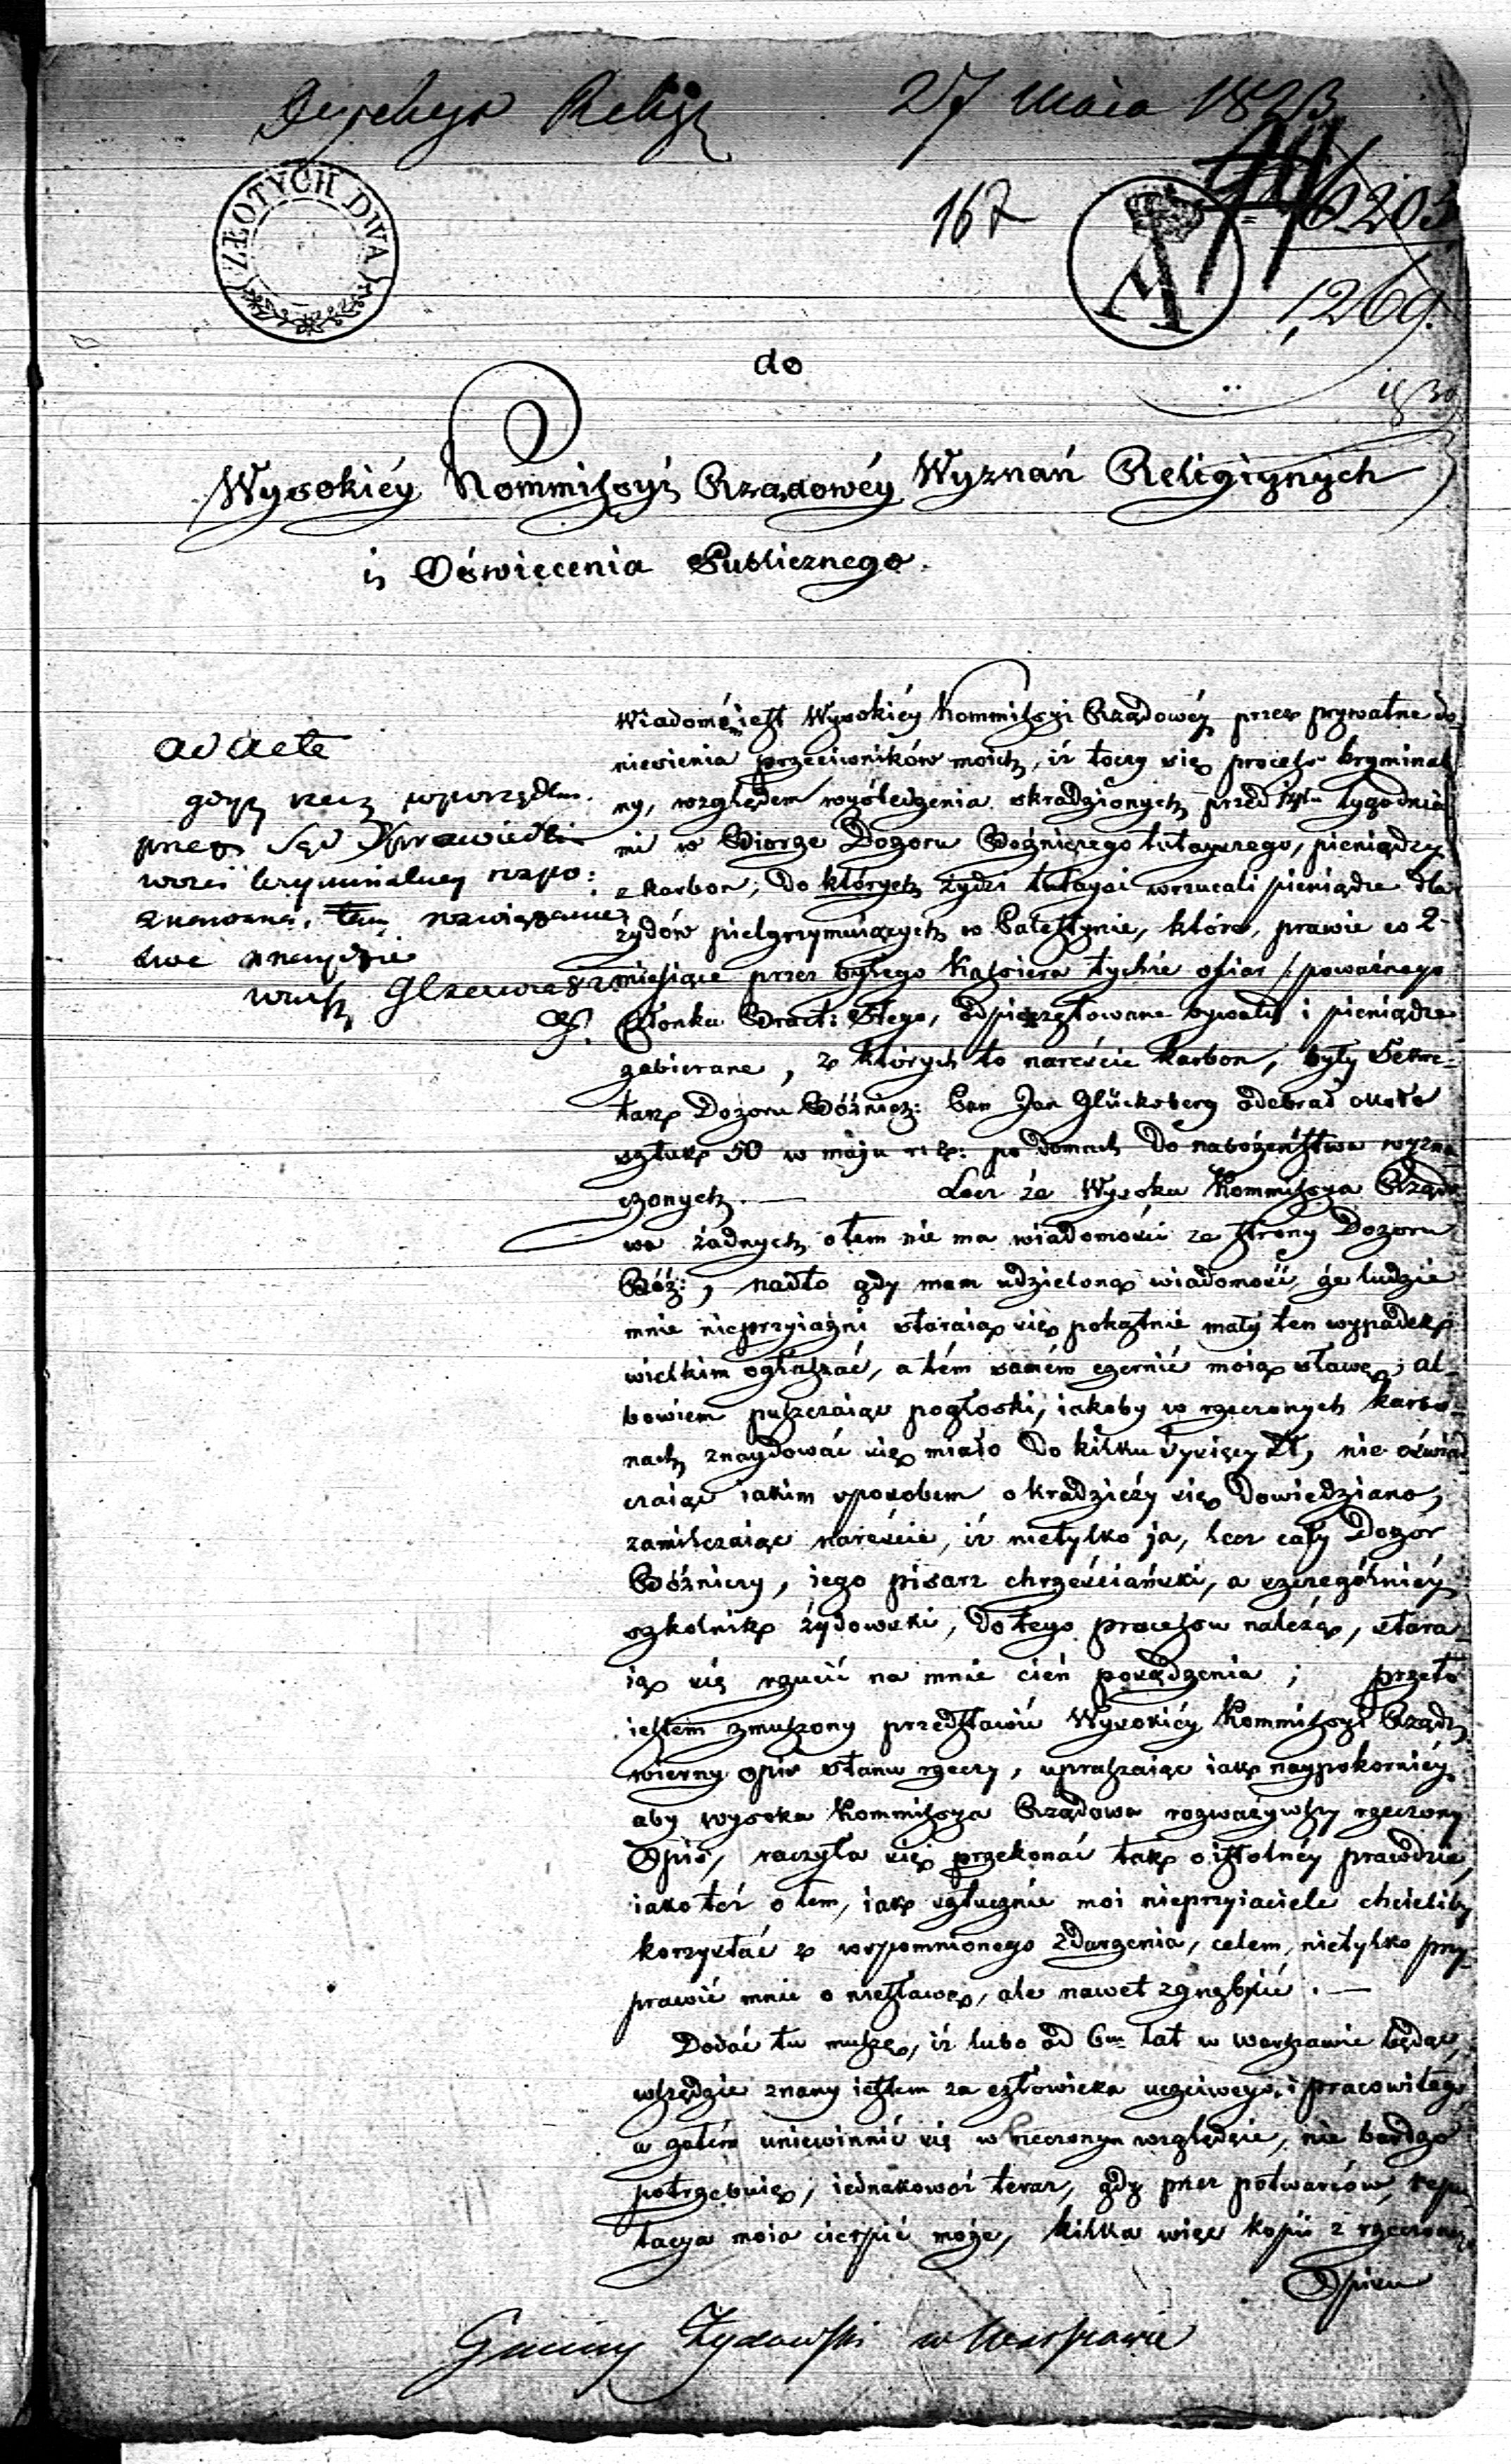 27 Maia 1823
ZŁOTYCH DWA
167
6203
1269.
do
Wysokiéy Kommissyi Rządowéy Wyznań Religiynych
i Oświecenia Publicznego.
ad acta
gdyż rzecz
przez Sąd Sprawiedli
wości kryminalney rozpo:
znawana, tam rozwiązanie
swe znaydzie
Wiadomé iest Wysokiéy Kommissyi Rządowéy przez prywatne do-
niesienia przeciwników moich, iż toczy się process kryminal
ny, względem wyśledzenia skradzionych przed tygodnia
mi w Biórze Dozoru Bożniczego tutayszego, pieniędzy
z karbon, do których żydzi tutaysi wrzucali pieniądze dla
żydów pielgrzymuiących w Palestynie, które, prawie co 2
miesiące przez byłego Kassiera tychże ofiar / poważnego
Członka Bract: Stego, odpieczętowane bywały i pieniądze
zabierane, z których to nareście karbon, były Sekre-
tarz Dozoru Bóźnicz: Pan Jan Glücksberg odebrał około
sztuk 50 w maju r: z: po domach do nabożeństwa wyzna
czonych. — Lecz że Wysoka Kommissya Rządo
wa żadnych o tem nie ma wiadomości ze strony Dozoru
Bóż:, nadto gdy mam udzieloną wiadomość, że ludzie
mnie nieprzyiaźni staraią się pokątnie mały ten wypadek
wielkim ogłaszać, a tém samém czernić moią sławę; al-
bowiem puszczaiąc pogłoski, iakoby w rzeczonych karbo-
nach znaydować się miało do kilku tysięcy Zł, nie oświad
czaiąc iakim sposobem o kradzieży się dowiedziano,
zamilczaiąc nareście, iż nietylko ja, lecz cały Dozór
Bóżniczy, jego pisarz chrześciański, a szczególniéy
szkolnik żydowski, do tego processu należą, stara-
ią się rzucić na mnie cień posądzenia; przeto
iestem zmuszony przedstawić Wysokiéy Kommissyi Rządy
wierny opis stanu rzeczy, upraszaiąc iak naypokorniéy
aby wysoka Kommissya Rządowa rozważywszy rzeczony
Opis, raczyła się przekonać tak o istotnéy prawdzie,
iako też o tem, iak sztucznie moi nieprzyiaciele chcieliby
korzystać z wspomnionego zdarzenia, celem, nietylko przy-
prawić mnie o niesławę, ale nawet zgnębić. —
Dodać tu muszę, iż lubo od 6ciu lat w Warszawie będąc,
wszędzie znany iestem za człowieka uczciwego i pracowitego,
a zatém uniewinnić się w rzeczonym względzie, nie bardzo
potrzebuię, iednakowoż teraz, gdy przez potwarców repu
tacya moia cierpić może, kilka więc kopii z rzeczonego
Opisu
Gminy Żydowski w Warszawie